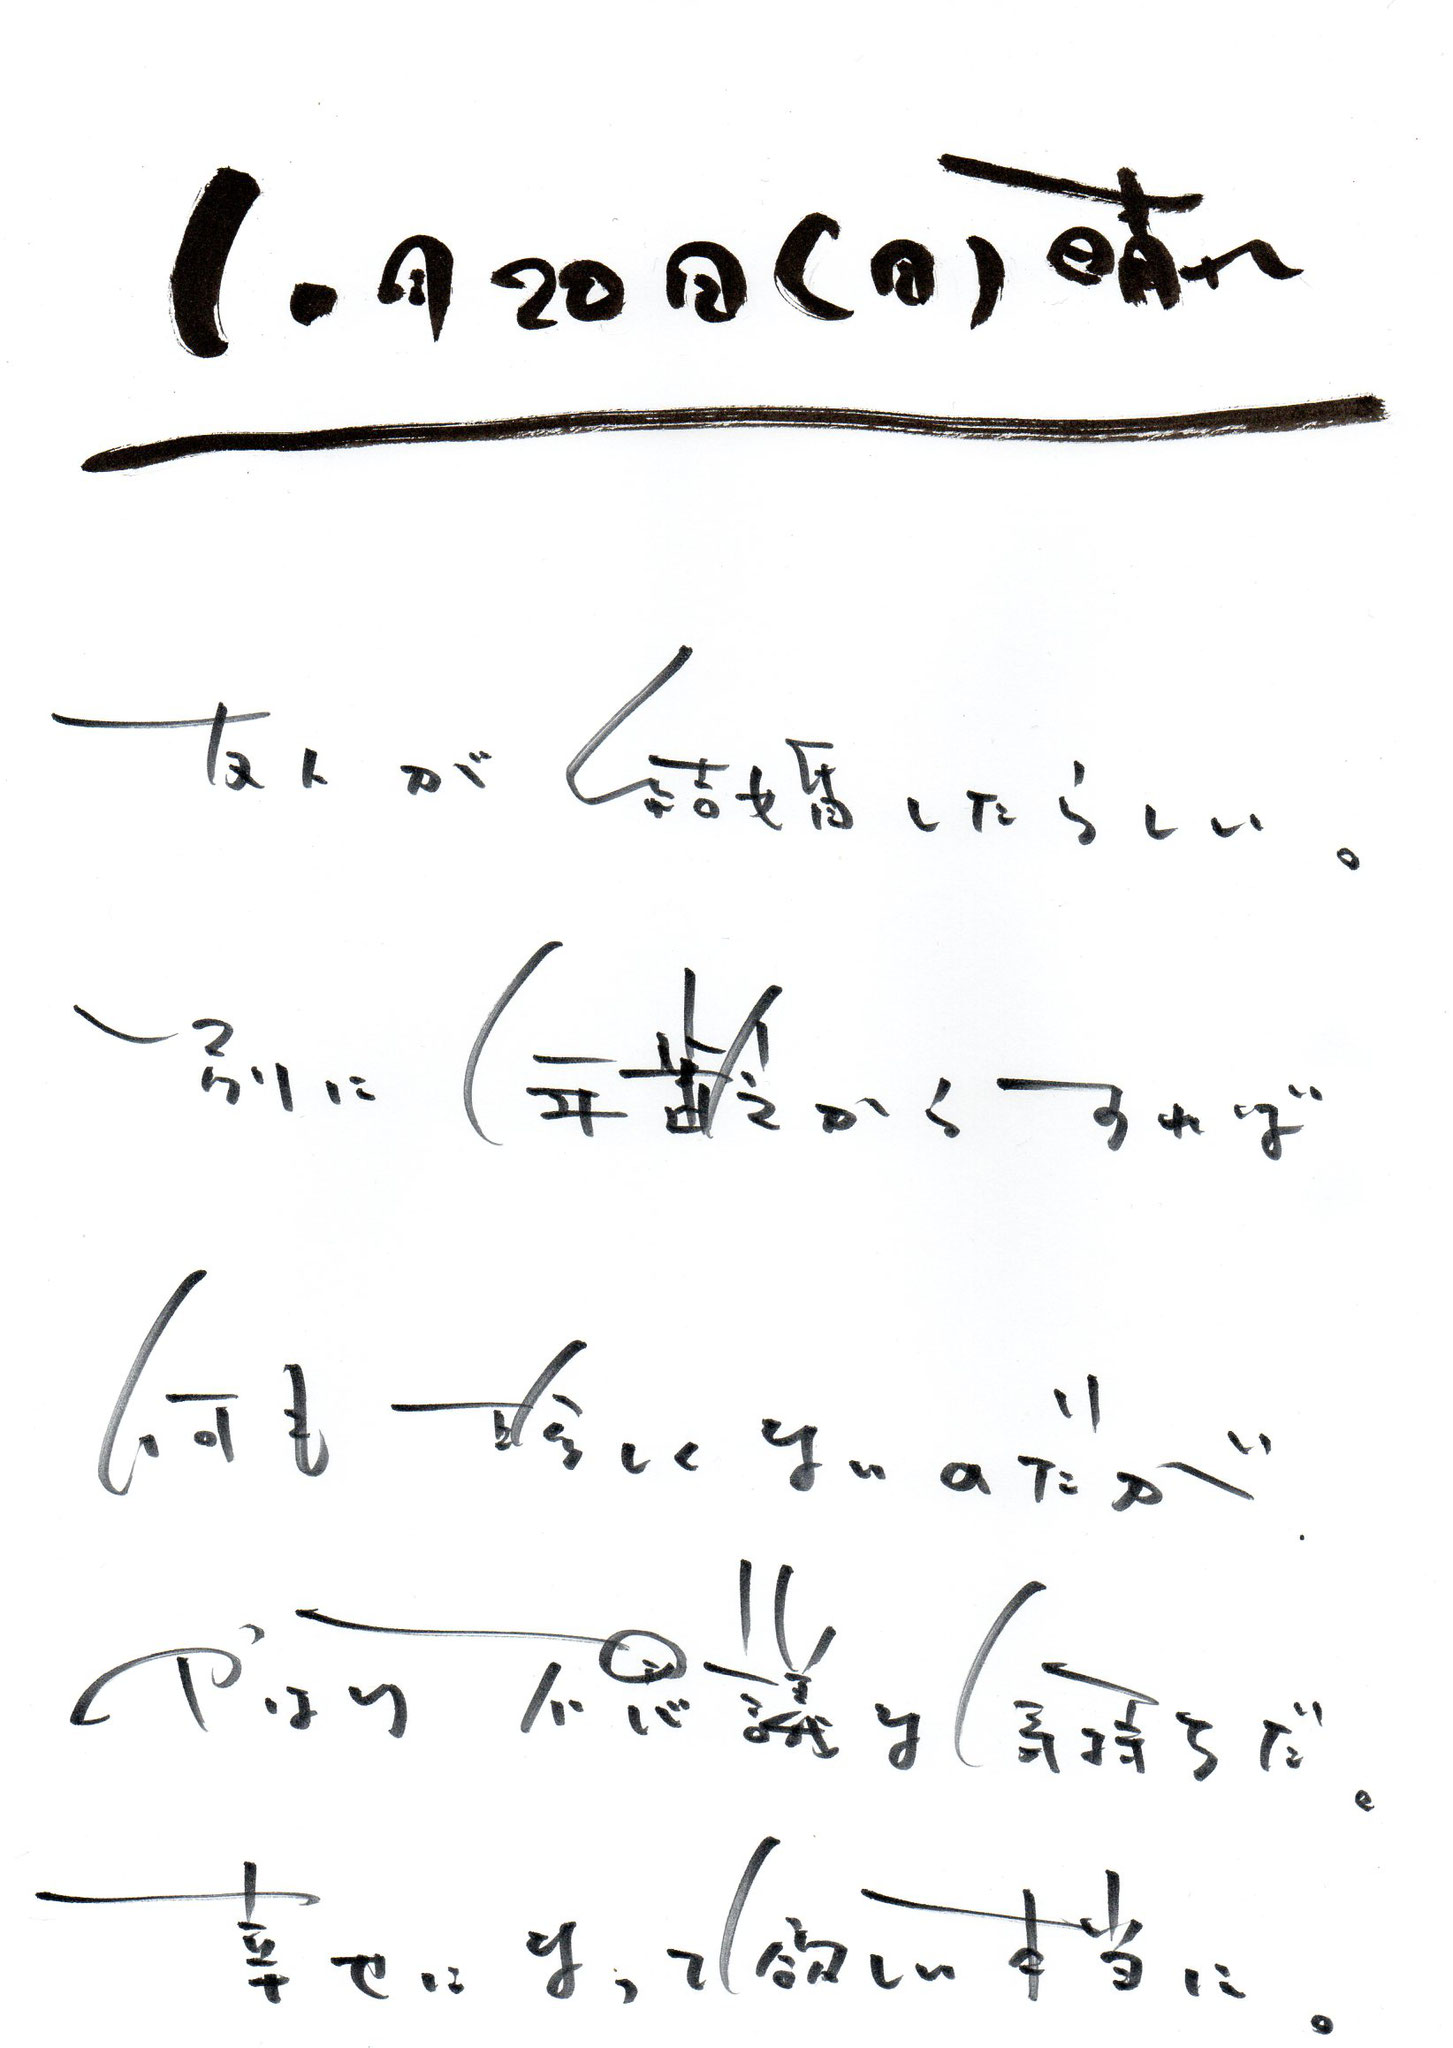 10月20日(日)晴れ
友人が結婚したらしい。
別に年齢からすれば
何も珍しくないのだが
やはり不思議な気持ちだ。
幸せになって欲しい本当に。